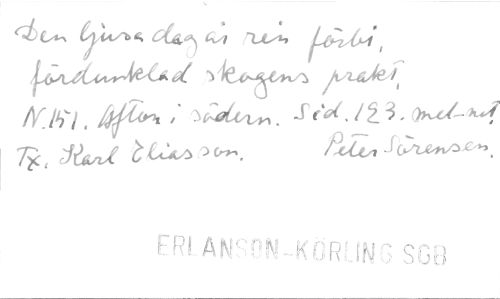 Den ljusa dag är ren förbi,
fördunklad skogens prakt,
N.151. Afton i södern. Sid. 123. mel-not,
Tx. Karl Eliasson. Peter Sörensen.
ERLANSON-KÖRLING SGB